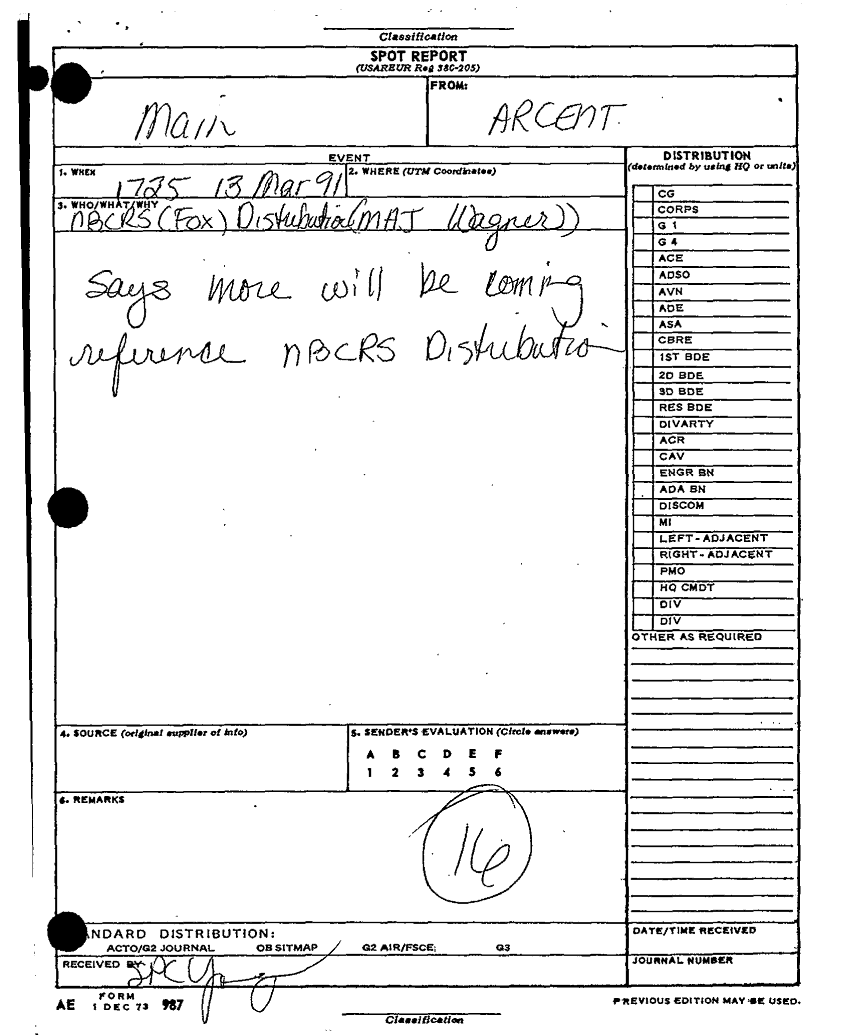 Classification
SPOT REPORT
(USAREUR Reg 380-205)
Main
FROM:
ARCENT.
EVENT
1. WHEN
1725 13 Mar 91
2. WHERE (UTM Coordinates)
3. WHO/WHAT/WHY
NBCRS (Fox) Distribution (MAJ Wagner))
Says more will be coming
reference NBCRS Distribution
DISTRIBUTION
(determined by using HQ or units)
CG
CORPS
G 1
G 4
ACE
ADSO
AVN
ADE
ASA
CBRE
1ST BDE
2D BDE
3D BDE
RES BDE
DIVARTY
ACR
CAV
ENGR BN
ADA BN
DISCOM
MI
LEFT-ADJACENT
RIGHT-ADJACENT
PMO
HQ CMDT
DIV
DIV
OTHER AS REQUIRED
4. SOURCE (original supplier of info)
5. SENDER'S EVALUATION (Circle answers)
A B C D E F
1 2 3 4 5 6
6. REMARKS
16
NDARD DISTRIBUTION:
ACTO/G2 JOURNAL OB SITMAP G2 AIR/FSCE; G3
RECEIVED BY:
SPC
DATE/TIME RECEIVED
JOURNAL NUMBER
AE FORM 1 DEC 73 987
PREVIOUS EDITION MAY BE USED.
Classification